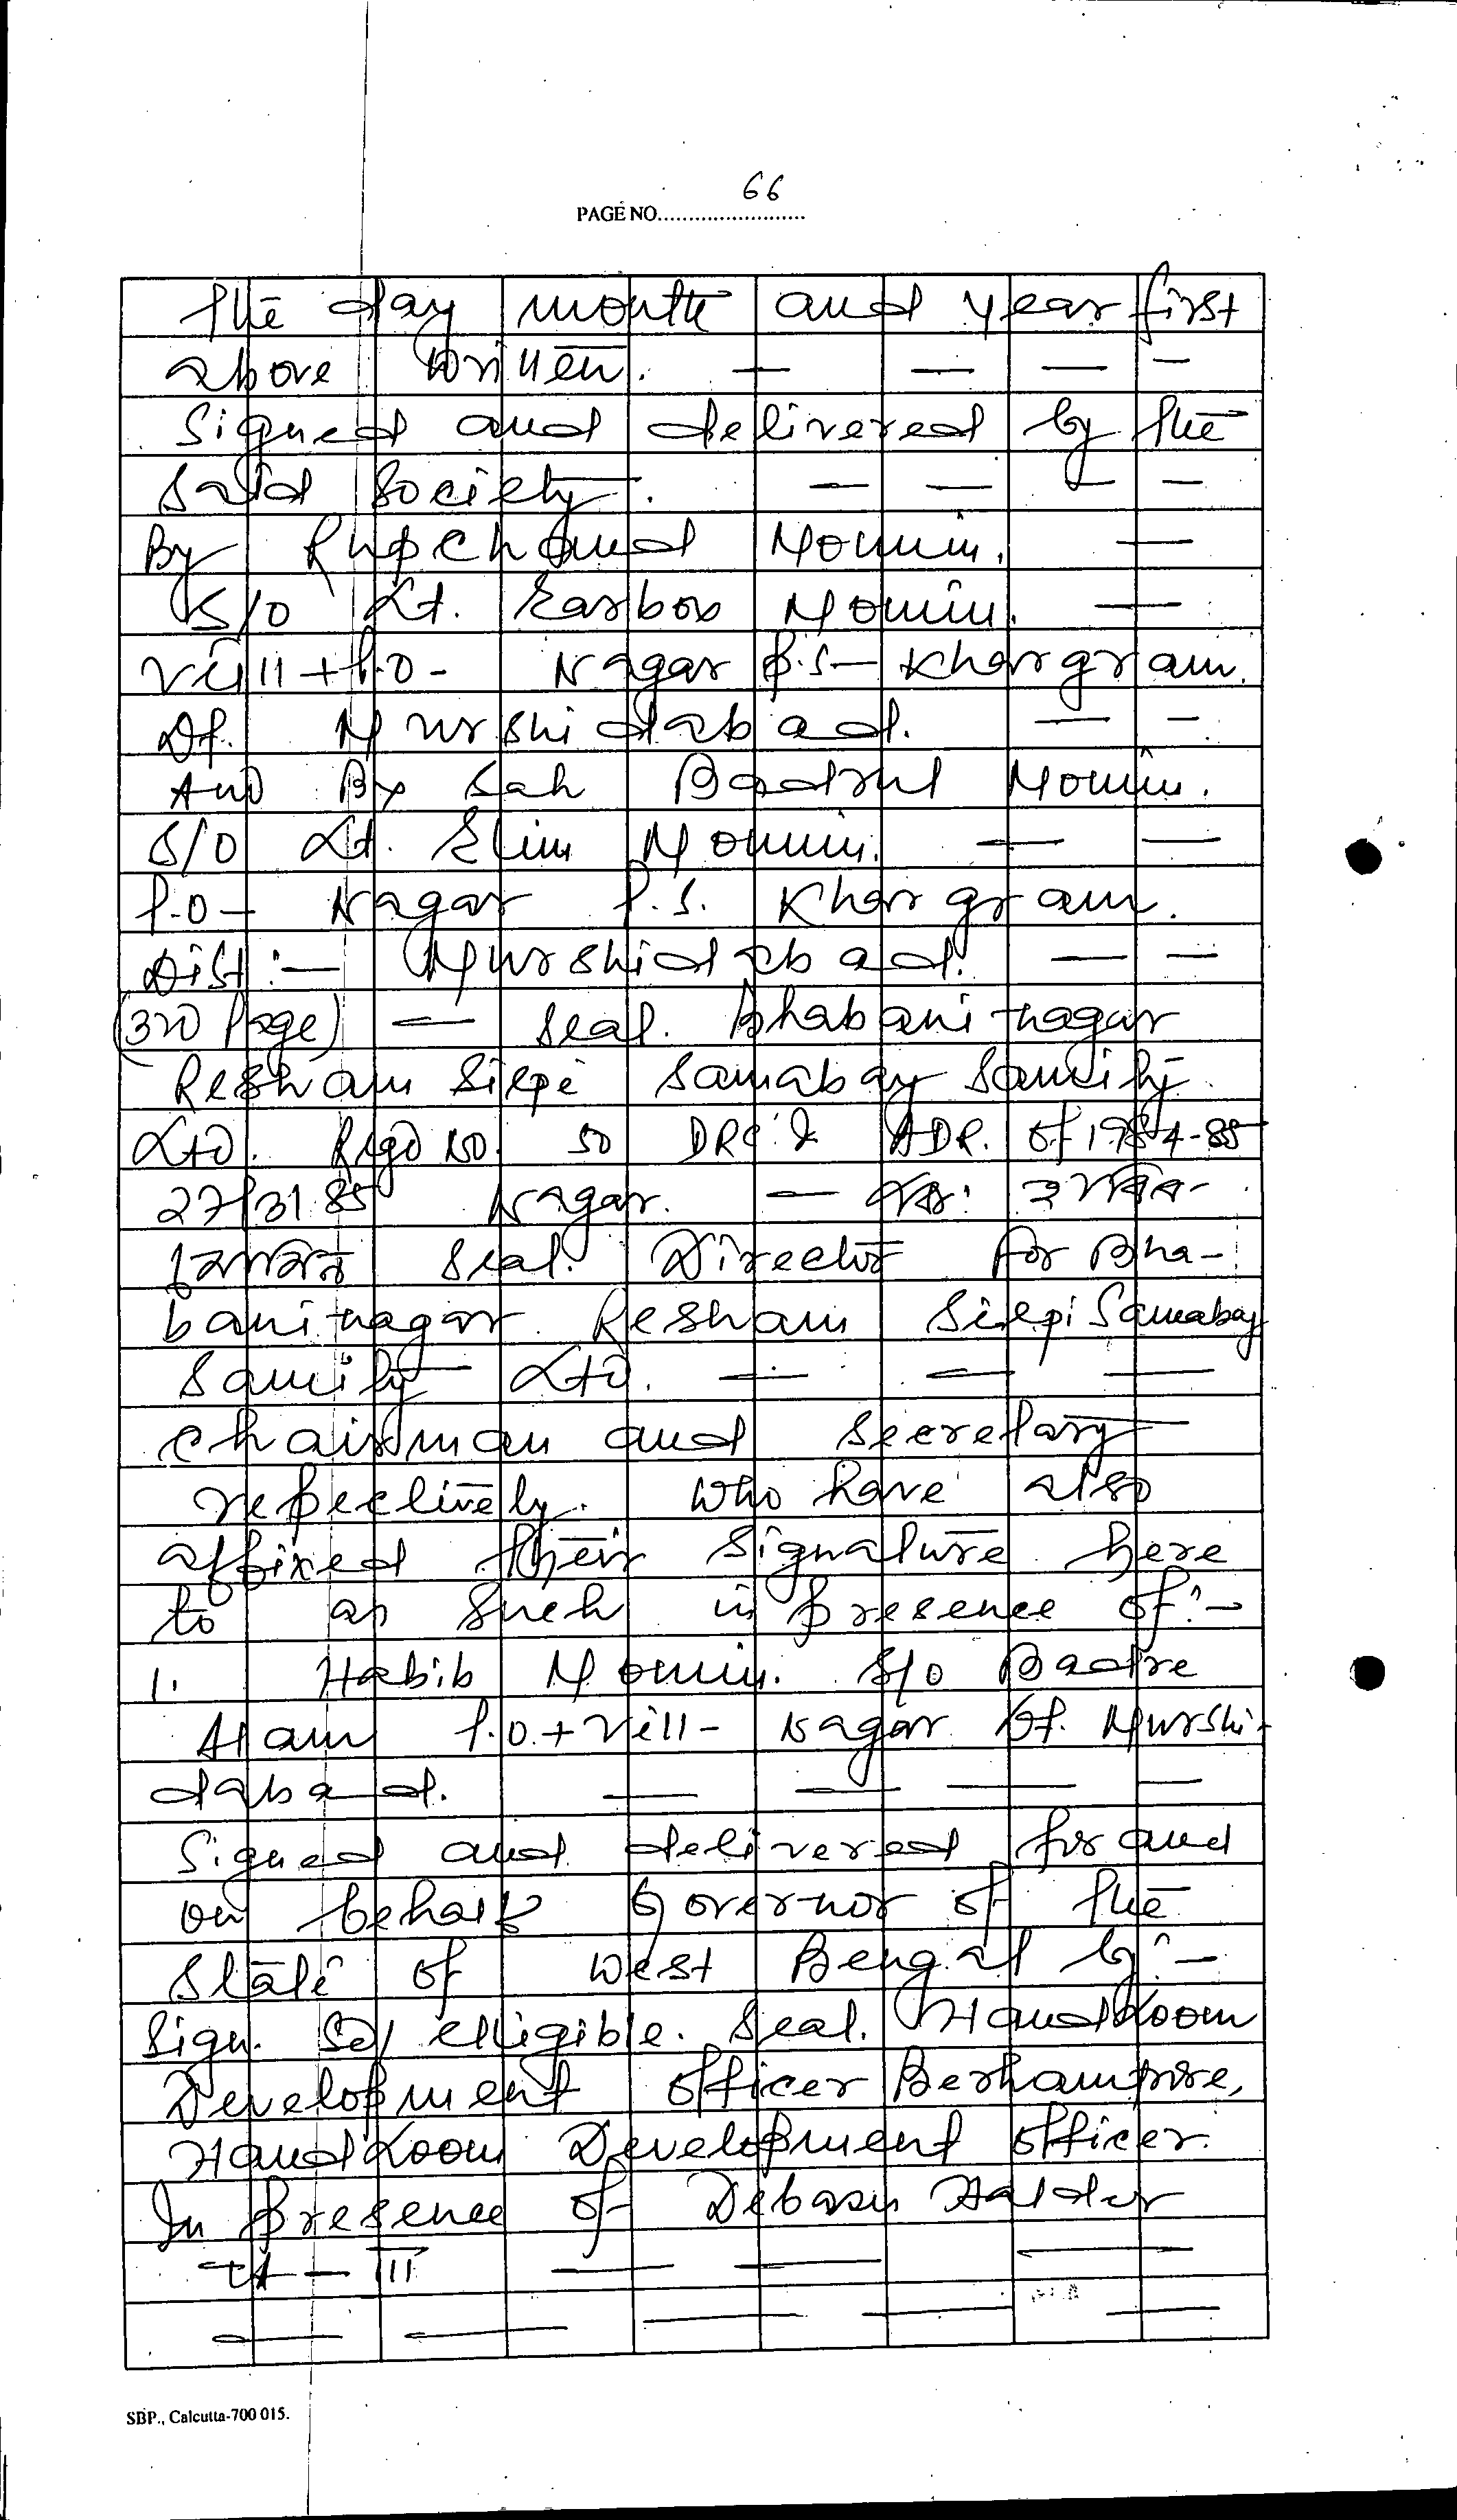 66
PAGE NO........................
The day month and year first
above written. — — — —
Signed and delivered by the
said society. — — — —
By Rupchand Momin. —
S/O Lt. Earbox Momin. —
Vill + P.O - Nagar P.S - Khargram.
Dt. Murshidabad. — —
And By Sah Badrul Momin.
S/O Lt. Elim Momin. — —
P.O — Nagar P.S. Khargram.
Dist :— Murshidabad. — —
(3rd Page) — Seal. Bhabaninagar
Resham Silpi Samabay Samity
Ltd. Regd No. 50 DRC & ADR. of 1984-85
Nagar. —
Seal. Director for Bha-
baninagar Resham Silpi Samabay
Samity Ltd. — — —
chairman and Secretary
repectively. Who have also
affixed their Signature here
to as such in presence of :—
1. Habib Momin. S/o Badre
Alam P.O. + Vill - Nagar Dt. Murshi-
dabad. — — — —
Signed and delivered for and
on behalf Governor of the
State of West Bengal by :—
Sign. Sd/ elligible. Seal. HandLoom
Development officer Berhampore,
HandLoom Development officer.
In presence of Debasis Halder
— III — — —
— — — — —
SBP., Calcutta-700 015.